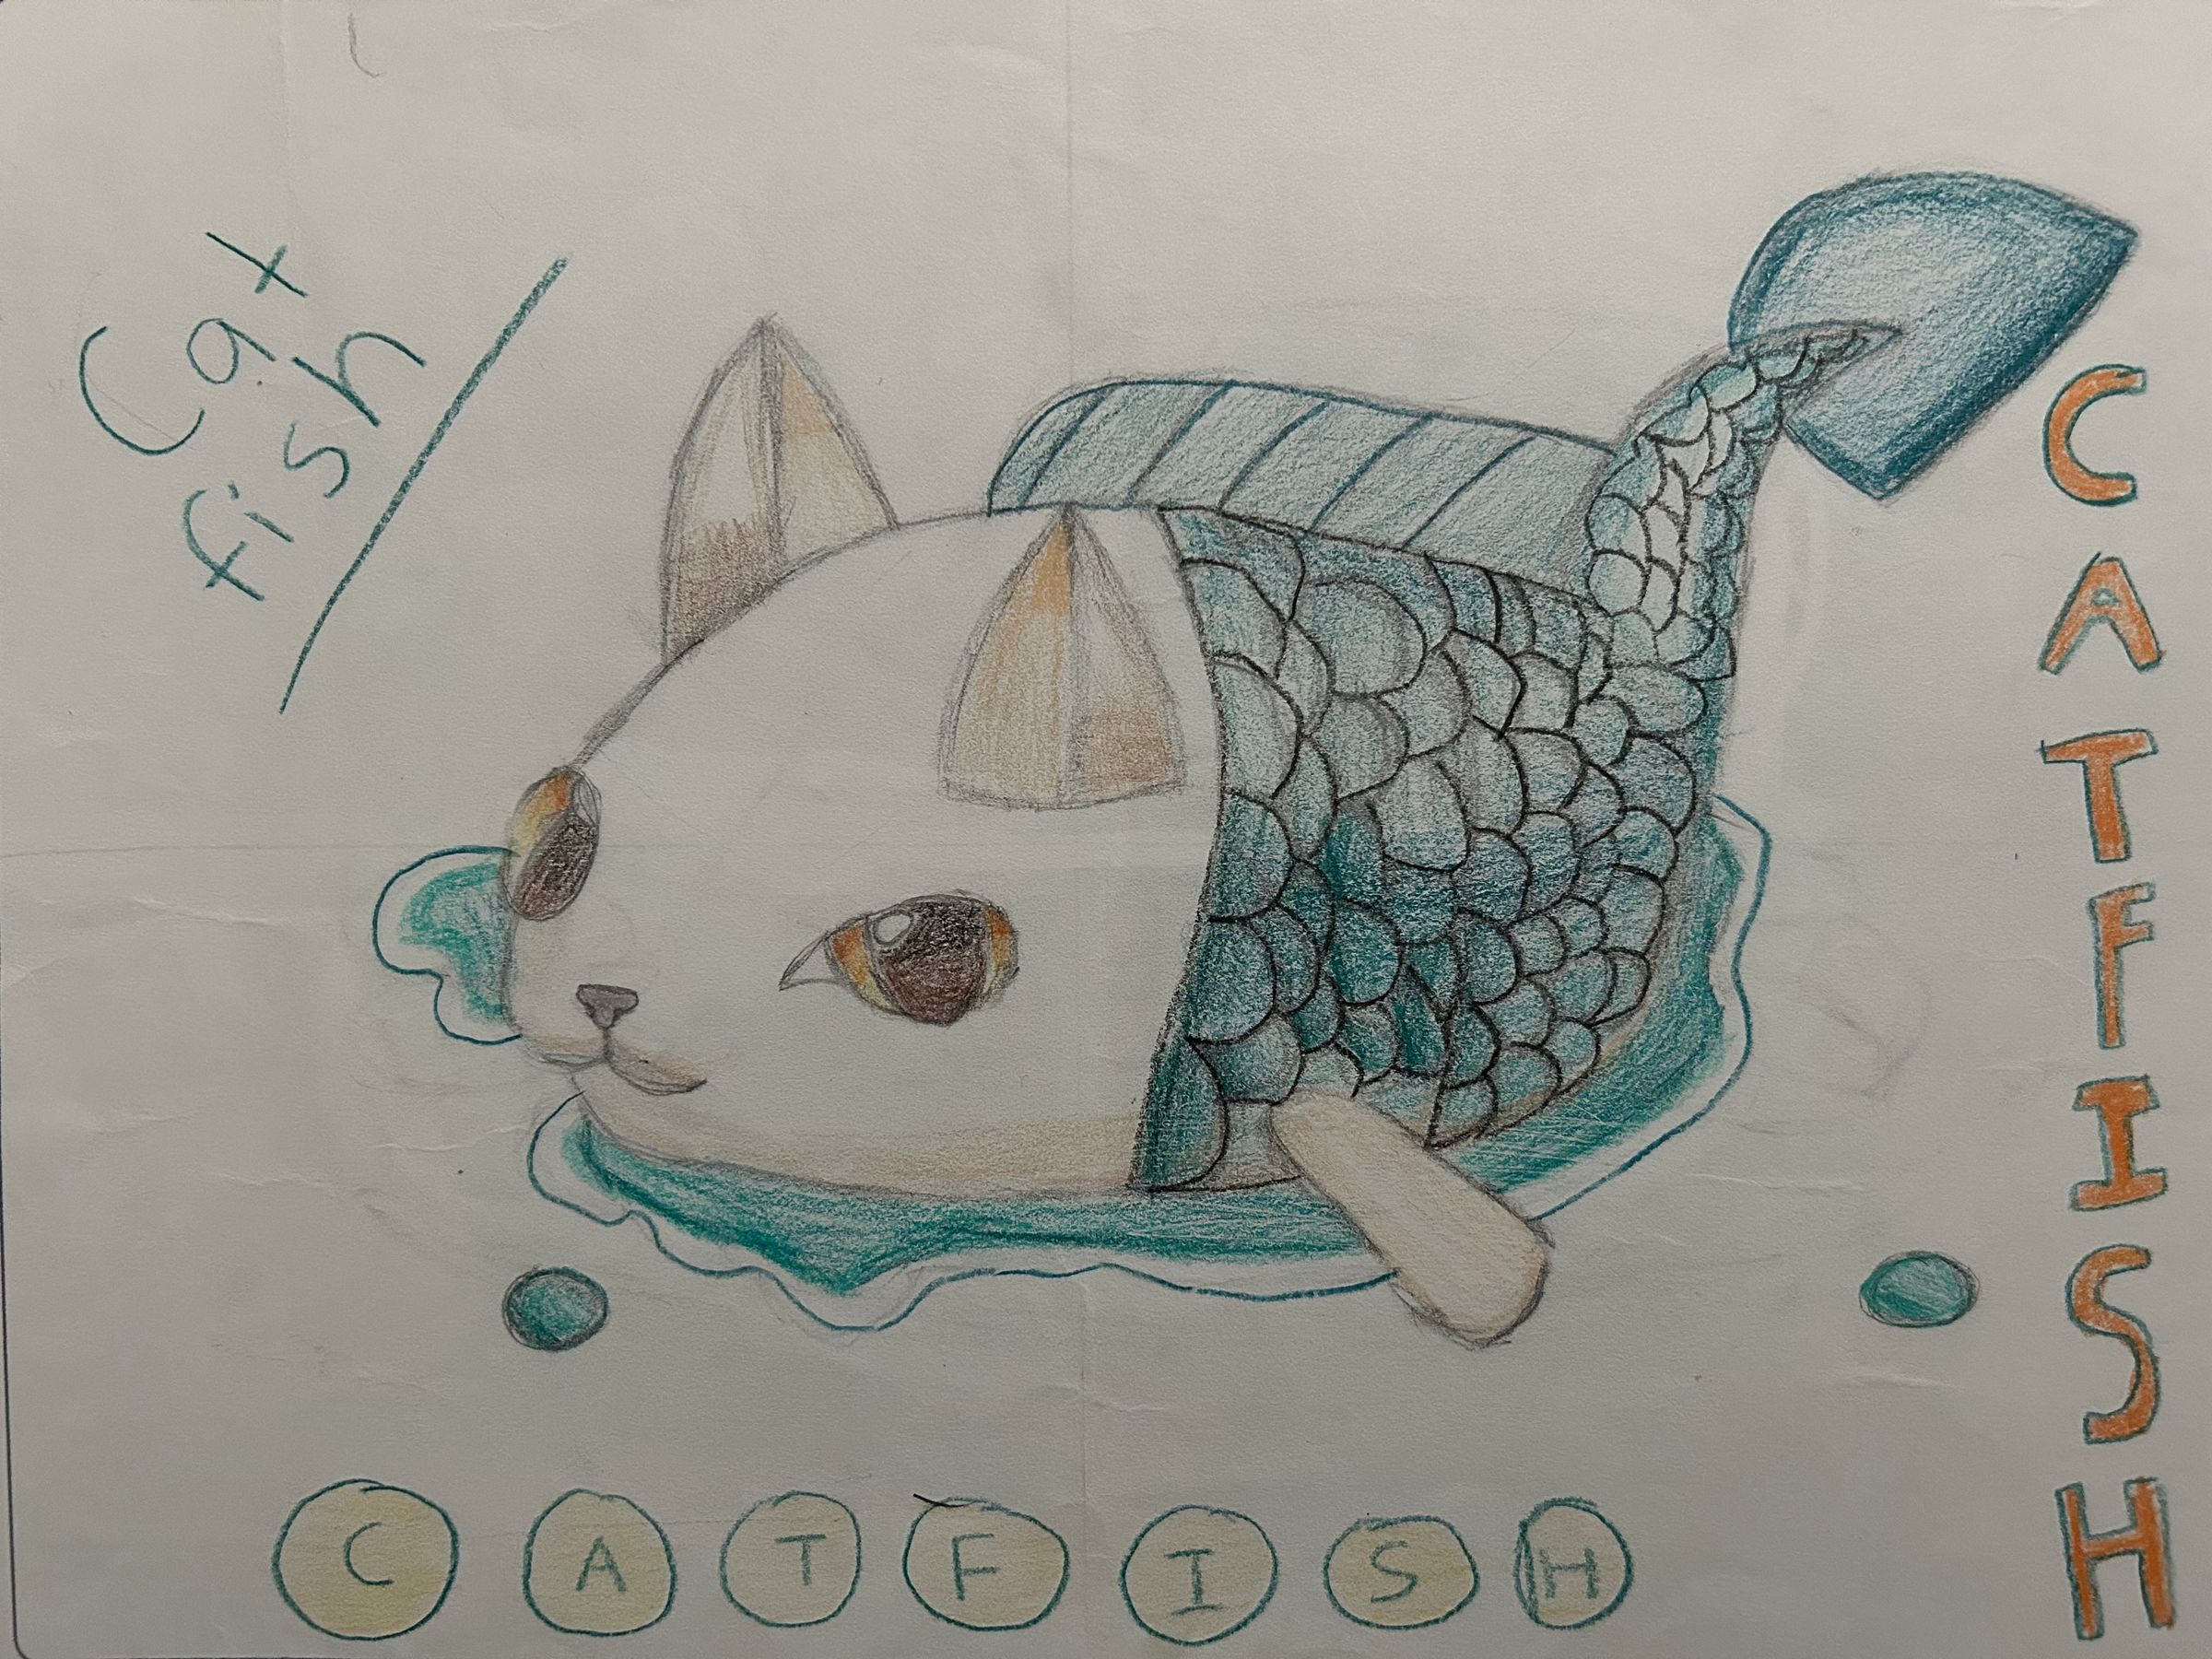 Cat
fish
CATFISH
CATFISH